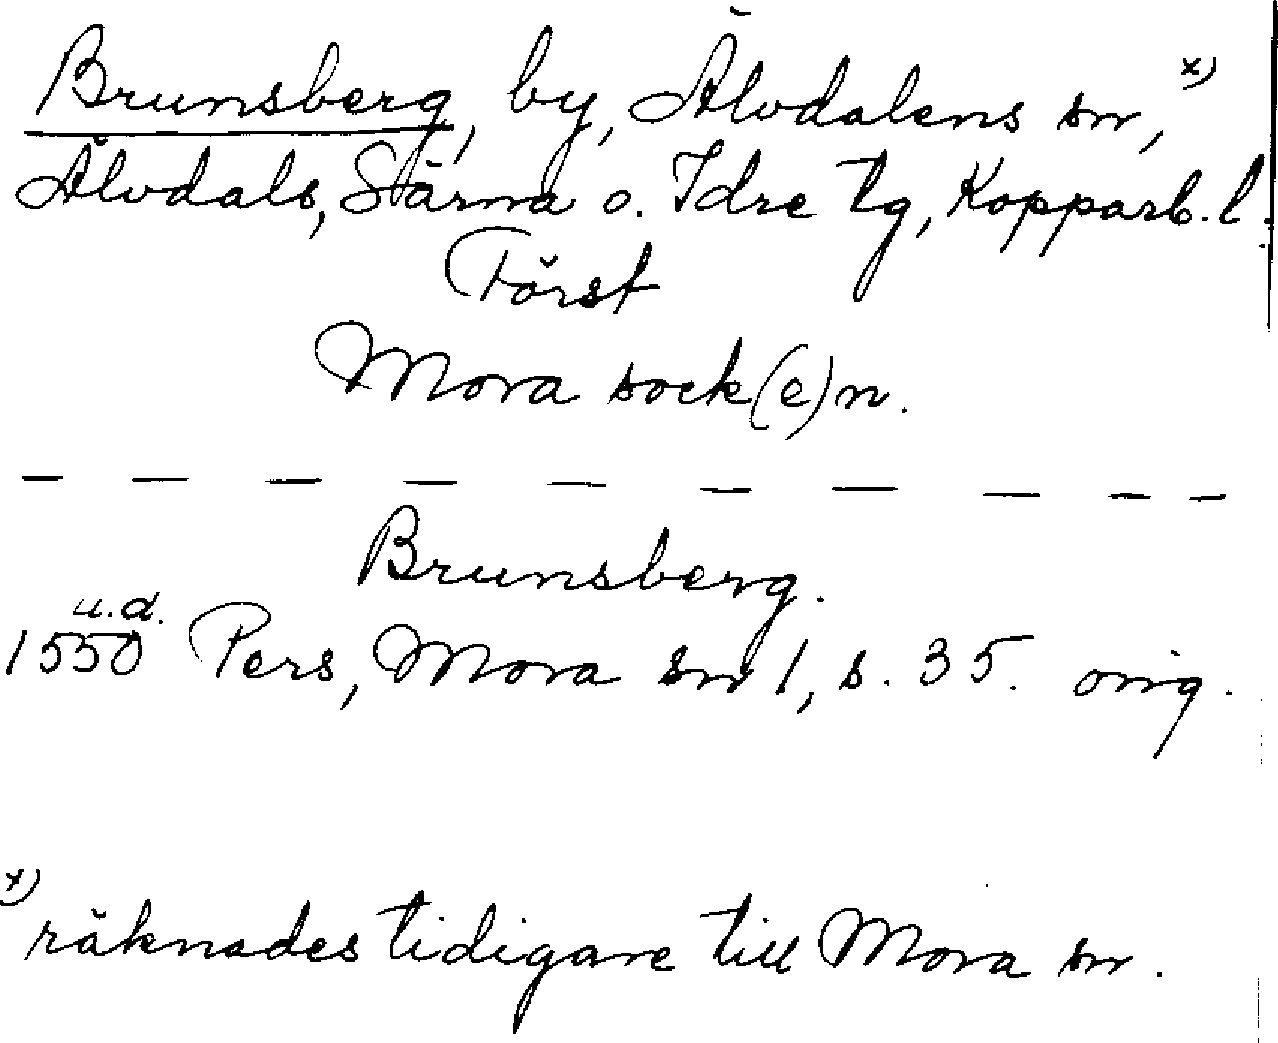 Brunsberg, by, Älvdalens sn, x)
Älvdals, Särna o. Idre tg, Kopparb. l.
Först
Mora sock(e)n.
— — — — — — — — — —
Brunsberg.
u.d.
1550 Pers, Mora sn 1, s. 35. orig.
x) räknades tidigare till Mora sn.